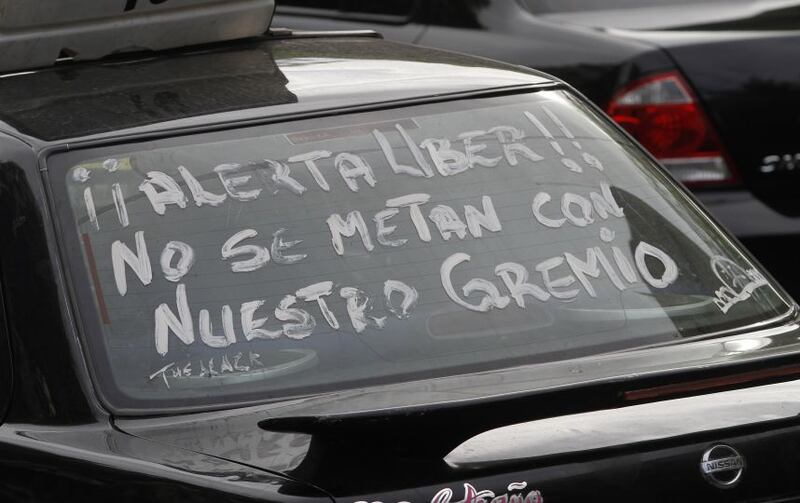 ¡¡ALERTA UBER!!
NO SE METAN CON
NUESTRO GREMIO
THE BLACK
NISSAN